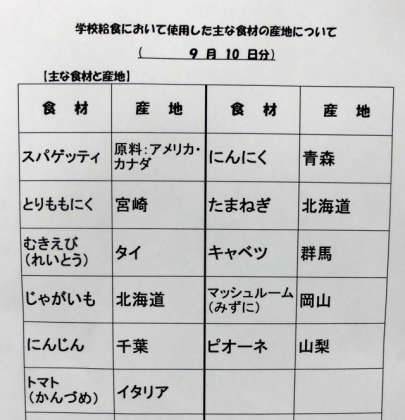 学校給食において使用した主な食材の産地について
( 9 月 10 日分)
【主な食材と産地】
食 材 産 地 食 材 産 地
スパゲッティ 原料:アメリカ・
カナダ にんにく 青森
とりももにく 宮崎 たまねぎ 北海道
むきえび
(れいとう) タイ キャベツ 群馬
じゃがいも 北海道 マッシュルーム
(みずに) 岡山
にんじん 千葉 ピオーネ 山梨
トマト
(かんづめ) イタリア